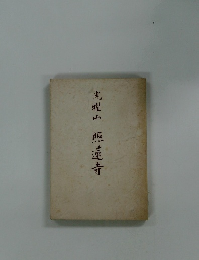 光曜山 照蓮寺